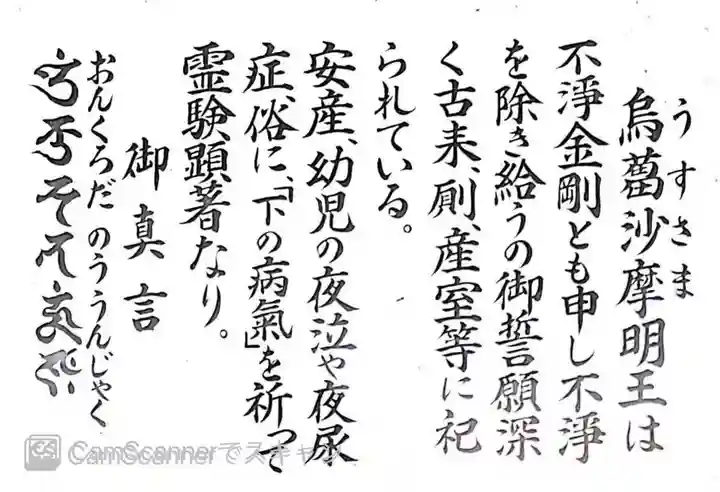 うすさま
烏蒭沙摩明王は
不淨金剛とも申し不淨
を除き給うの御誓願深
く古来、厠、産室等に祀
られている。
安産、幼児の夜泣や夜尿
症、俗に、「下の病氣」を祈って
霊験、顕著なり。
御真言
おんくろだ のううんじゃく
CamScannerでスキャン